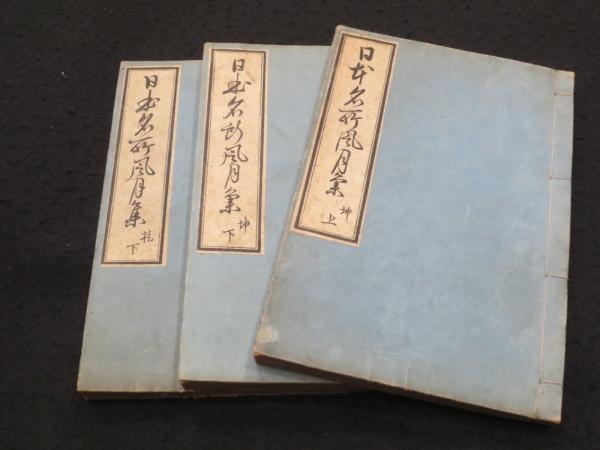 日本名所風月集 乾 下
日本名所風月集 坤 下
日本名所風月集 坤 上